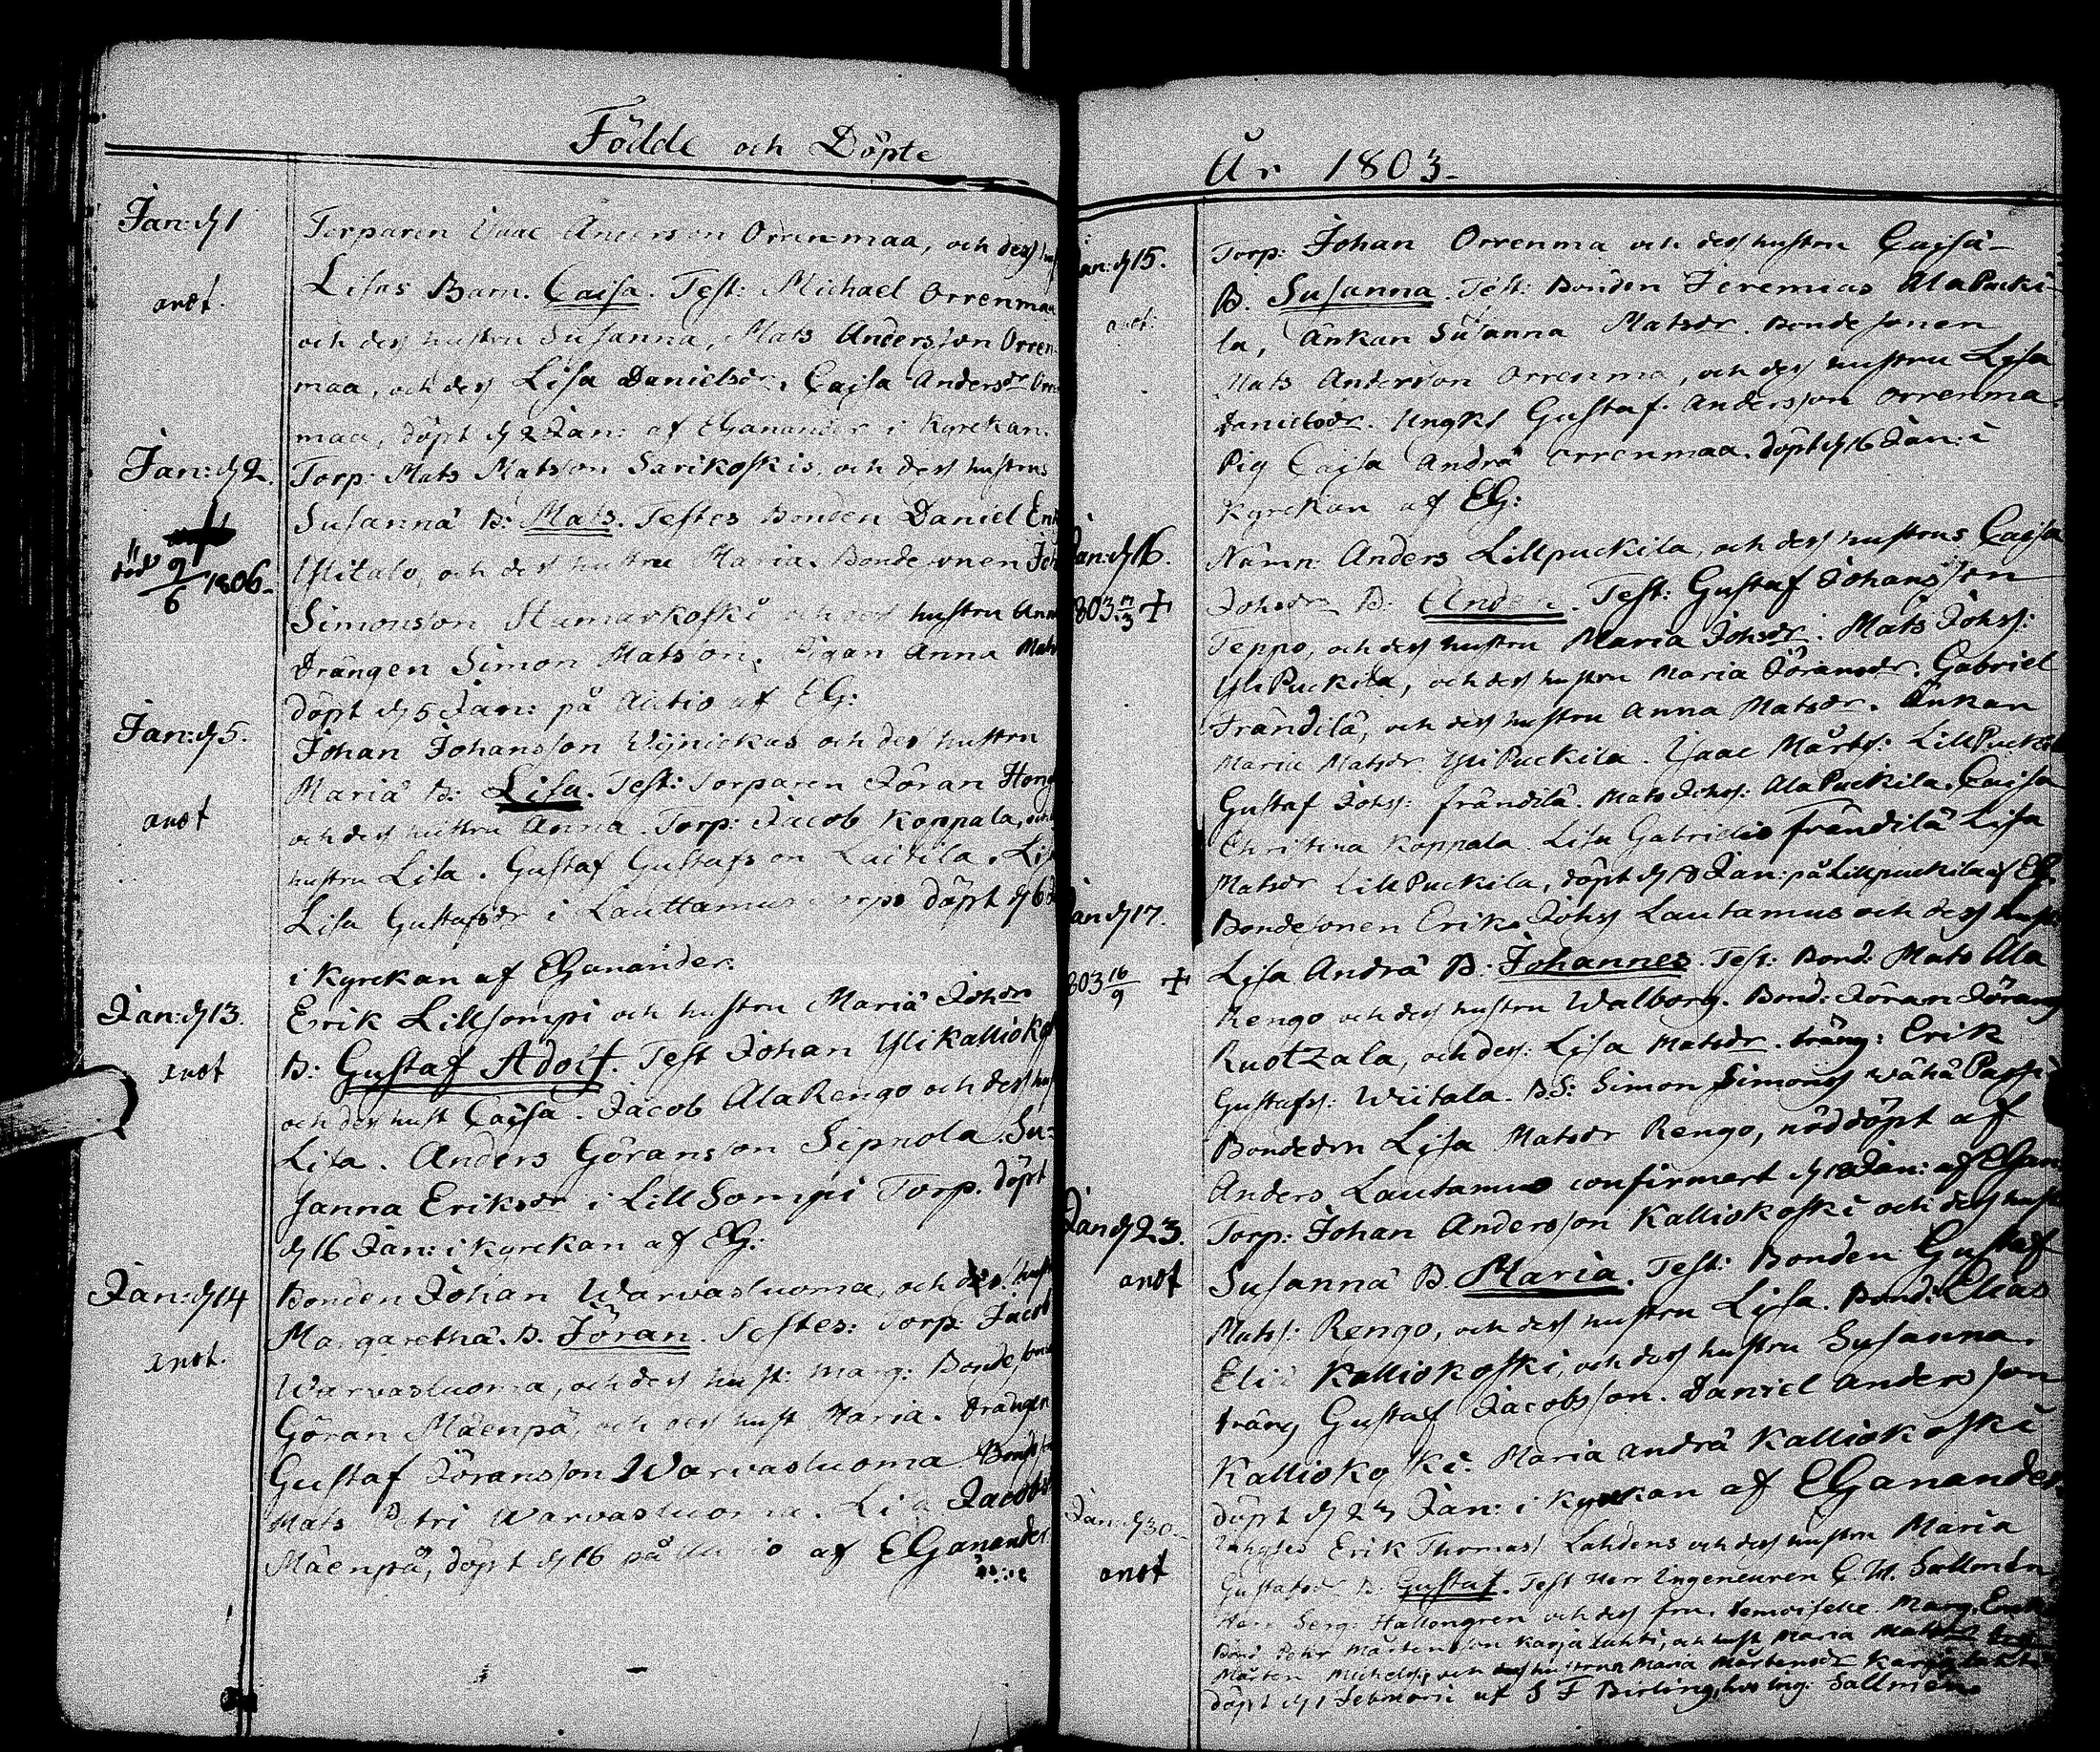 Födde och Döpte
Jan: d 1
Torparen Isaac Anderson Orrenmaa, och dess
anot.
Lisas Barn. Cajsa. Test: Michael Orrenmaa
och dess hustru Susanna, Mats Andersson Orren-
maa, och dess Lisa Danielsdr. Cajsa Andersdr
maa, döpt d 2 Jan: af EGanander i Kyrckan.
Jan: d 2.
Torp: Mats Matsson Sarikoskis, och dess hustrus
Susannä B: Mats. Testes Bonden Daniel
död 9/6 1806.
Ylitalo, och dess hustru Maria. Bondesonen
Simonsson och dess hustru
Drängen Simon Matsson. Pigan Anna
döpt d 5 Jan: på af EG:
Jan: d 5.
Johan Johansson och dess hustru
Mariä B: Lisa. Test: Torparen Jöran
anot
och dess hustru Anna. Torp: Jacob Koppala,
hustru Lisa. Gustaf Gustafsson Laitila.
Lisa Gustafsdr i Lauttamus Torp döpt d 6
i Kyrckan af EGanander.
Jan: d 13.
Erik Lillsompi och hustru Mariä Johdr
anot
B: Gustaf Adolf. Test Johan Ylikalliokos
och dess hust Cajsa. Jacob AlaRengo och dess
Lisa. Anders Göransson Sippola. Su-
sanna Eriksdr i LillSompi Torp. döpt
d 16 Jan: i Kyrckan af EG:
Jan: d 14
Bonden Johan Warvasluoma, och dess
anot.
Margarethä. B. Jöran. Testes: Torp: Jacob
Warvasluoma, och dess hust: Marg: Bonde
Göran Mäenpä, och dess hust Maria. Drängen
Gustaf Jöransson Warvasluoma
Mats Petri Warvasluoma. Lisa
Mäenpä, döpt d 16 på af EGanander.
År 1803.
Jan: d 15.
Torp: Johan Orrenma och dess hustru Cajsä
anot.
B. Susanna. Test: Bonden Jeremias AlaPucki-
la, Änkan Susanna Matsdr. Bondesonen
Mats Andersson Orrenma, och dess hustru Lisa
Danielsdr. Ungkl Gustaf Andersson Orrenma.
Pig Cajsa Andrä Orrenmaa. döpt d 16 Jan: i
Kyrckan af EG:
Jan: d 16.
Nämn: Anders Lillpuckila, och dess hustrus Cajsa
803 +
Johsdr B. Anders. Test: Gustaf Johansson
Teppo, och dess hustru Maria Johsdr. Mats Johss:
YliPuckila, och dess hustru Maria Jöransdr. Gabriel
Frändilä, och dess hustru Anna Matsdr. Änkan
Maria Matsdr YliPuckila. Isaac Mårts: LillPuckila
Gustaf Johss: Frändilä. Mats Johss: AlaPuckila. Cajsa
Christina Koppala. Lisa Gabrielis Frändilä Lisa
Matsdr LillPuckila, döpt d Jan: på Lillpuckila af EG.
Jan d 17.
Bondesonen Erik Johss Lautamus och dess
803 16/9 +
Lisa Andrä B. Johannes. Test: Bond: Mats Ala
Rengo och dess hustru Walborg. Bond: Jöran Jörans
Ruotzala, och dess: Lisa Matsdr. dräng: Erik
Gustafss: Wiitala. BS: Simon Simons
Bondedrn Lisa Matsdr Rengo, nöddöpt af
Anders Lautamus confirmert d 18 Jan: af EGan
Jan d 23.
Torp: Johan Andersson Kalliokoski och dess
anot
Susannä B. Maria. Test: Bonden Gustaf
Matss: Rengo, och dess hustru Lisa. Bond: Elias
Kalliokoski, och dess hustru Susanna.
dräng Gustaf Jacobsson. Daniel Andersson
Kalliokoski. Maria Andrä Kalliokoski
döpt d 23 Jan: i Kyrckan af EGanander.
Jan: d 30.
Erik Thomass Lahdens och dess hustru Maria
anot
Gustafsdr B. Gustaf. Test Herr Ingeneuren C. W. Sallmén
Herr Serg: Hallongren och dess fru. Demoiselle Marg.
Bond Petr Mårtensson Karjalahti, och hust Maria
Mårten Michelss, och dess hustru Maria Mårtensdr
döpt d 1 Februarii af S F Birling, hos Ing: Sallmén.